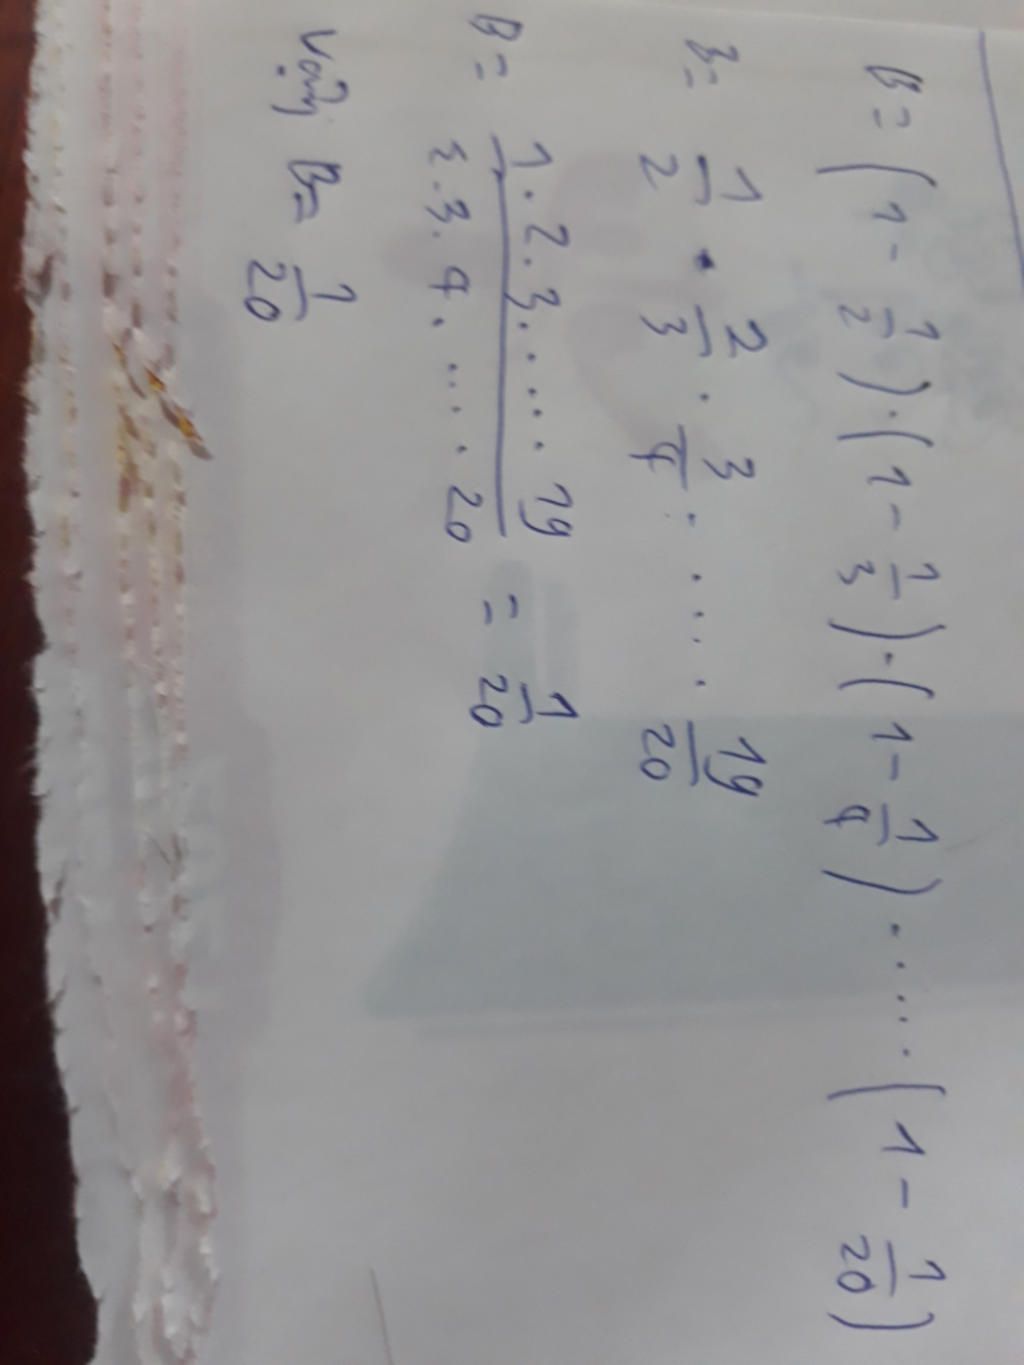 B = (1 - 1/2) . (1 - 1/3) . (1 - 1/4) ..... (1 - 1/20)
B = 1/2 . 2/3 . 3/4 . .... 19/20
B = 1.2.3......19 / 2.3.4......20 = 1/20
Vậy B = 1/20